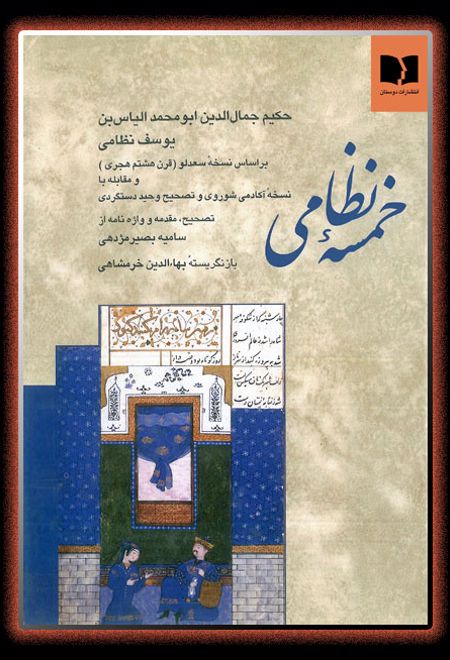 انتشارات دوستان
خمسهٔ نظامی
حکیم جمال‌الدین ابومحمد الیاس‌بن
یوسف نظامی
براساس نسخهٔ سعدلو (قرن هشتم هجری)
و مقابله با
نسخهٔ آکادمی شوروی و تصحیح وحید دستگردی
تصحیح، مقدمه و واژه نامه از
سامیه بصیرمژدهی
بازنگریستهٔ بهاءالدین خرمشاهی
چارشنبه که از شکوفه مهر